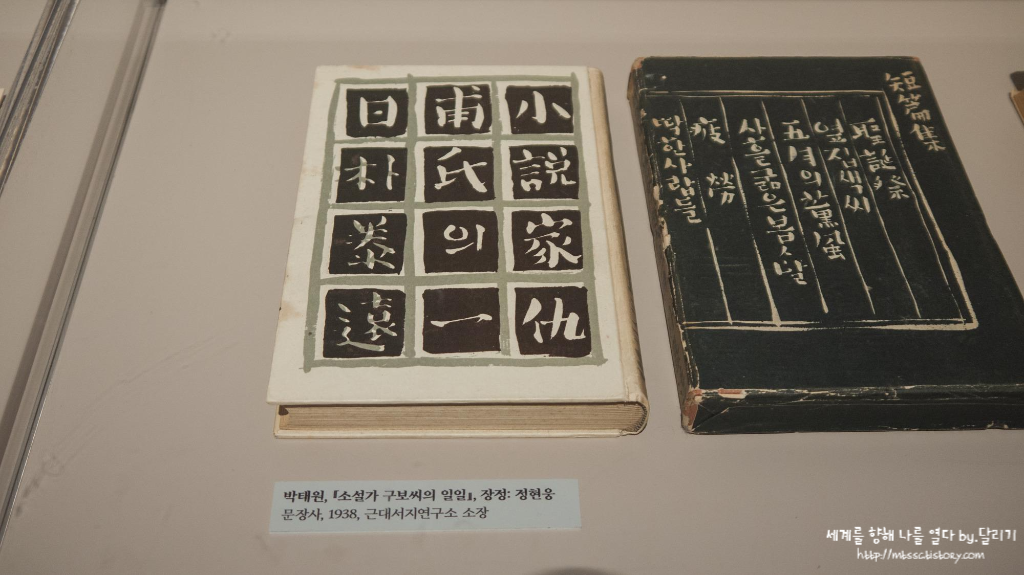 小説家仇
甫氏의一
日朴泰遠
短篇集
聖誕祭
옆집색씨
五月의薰風
사흘굶은봄ㅅ달
疲勞
딱한사람들
박태원, 『소설가 구보씨의 일일』, 장정: 정현웅
문장사, 1938, 근대서지연구소 소장
세계를 향해 나를 열다 by.달리기
http://mtssc.tistory.com